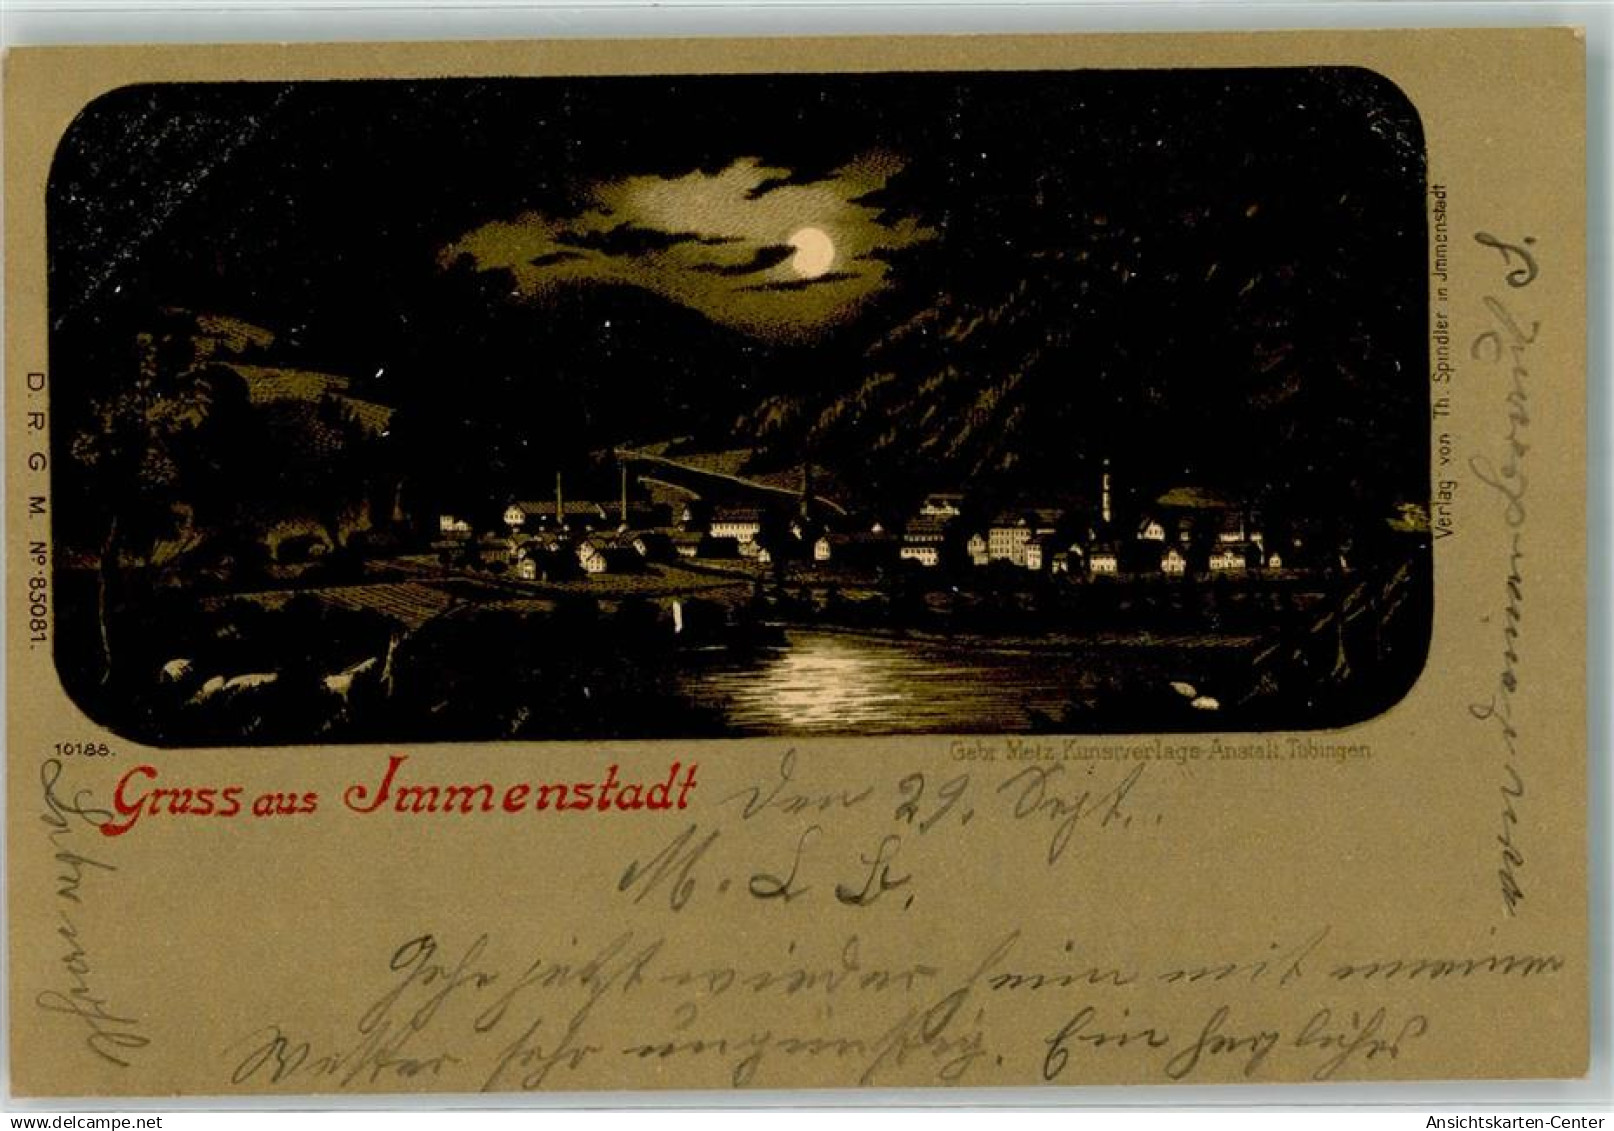 D. R. G. M. No. 85081.
Verlag von Th. Spindler in Immenstadt
10188.
Gebr. Metz Kunstverlags-Anstalt, Tübingen
Gruss aus Immenstadt
den 29. Sept.
M. L. B.
Gehe jetzt wieder heim mit meinem
Wetter sehr ungünstig. Ein herzliches
Lebewohl
www.delcampe.net
Ansichtskarten-Center